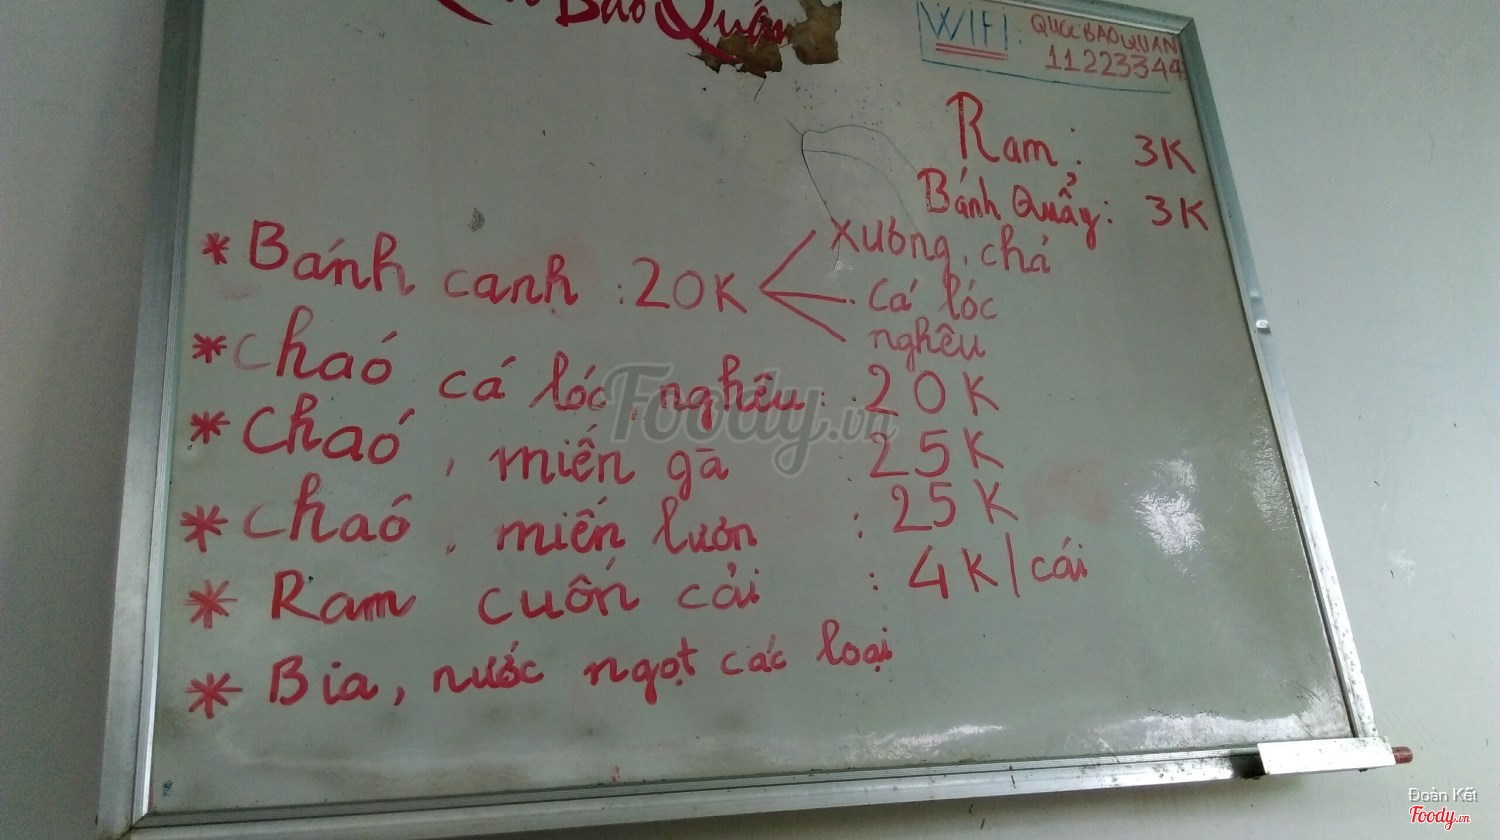 Bảo Quán
WIFI : QUOCBAOQUAN
11223344
Ram : 3K
Bánh Quẩy : 3K
* Bánh canh : 20K
xương, chả
cá lóc
nghêu
* Chaó cá lóc, nghêu : 20K
* Chaó, miến gà : 25K
* Chaó, miến lươn : 25K
* Ram cuốn cải : 4K/cái
* Bia, nước ngọt các loại
Foody.vn
Đoàn Kết
Foody.vn